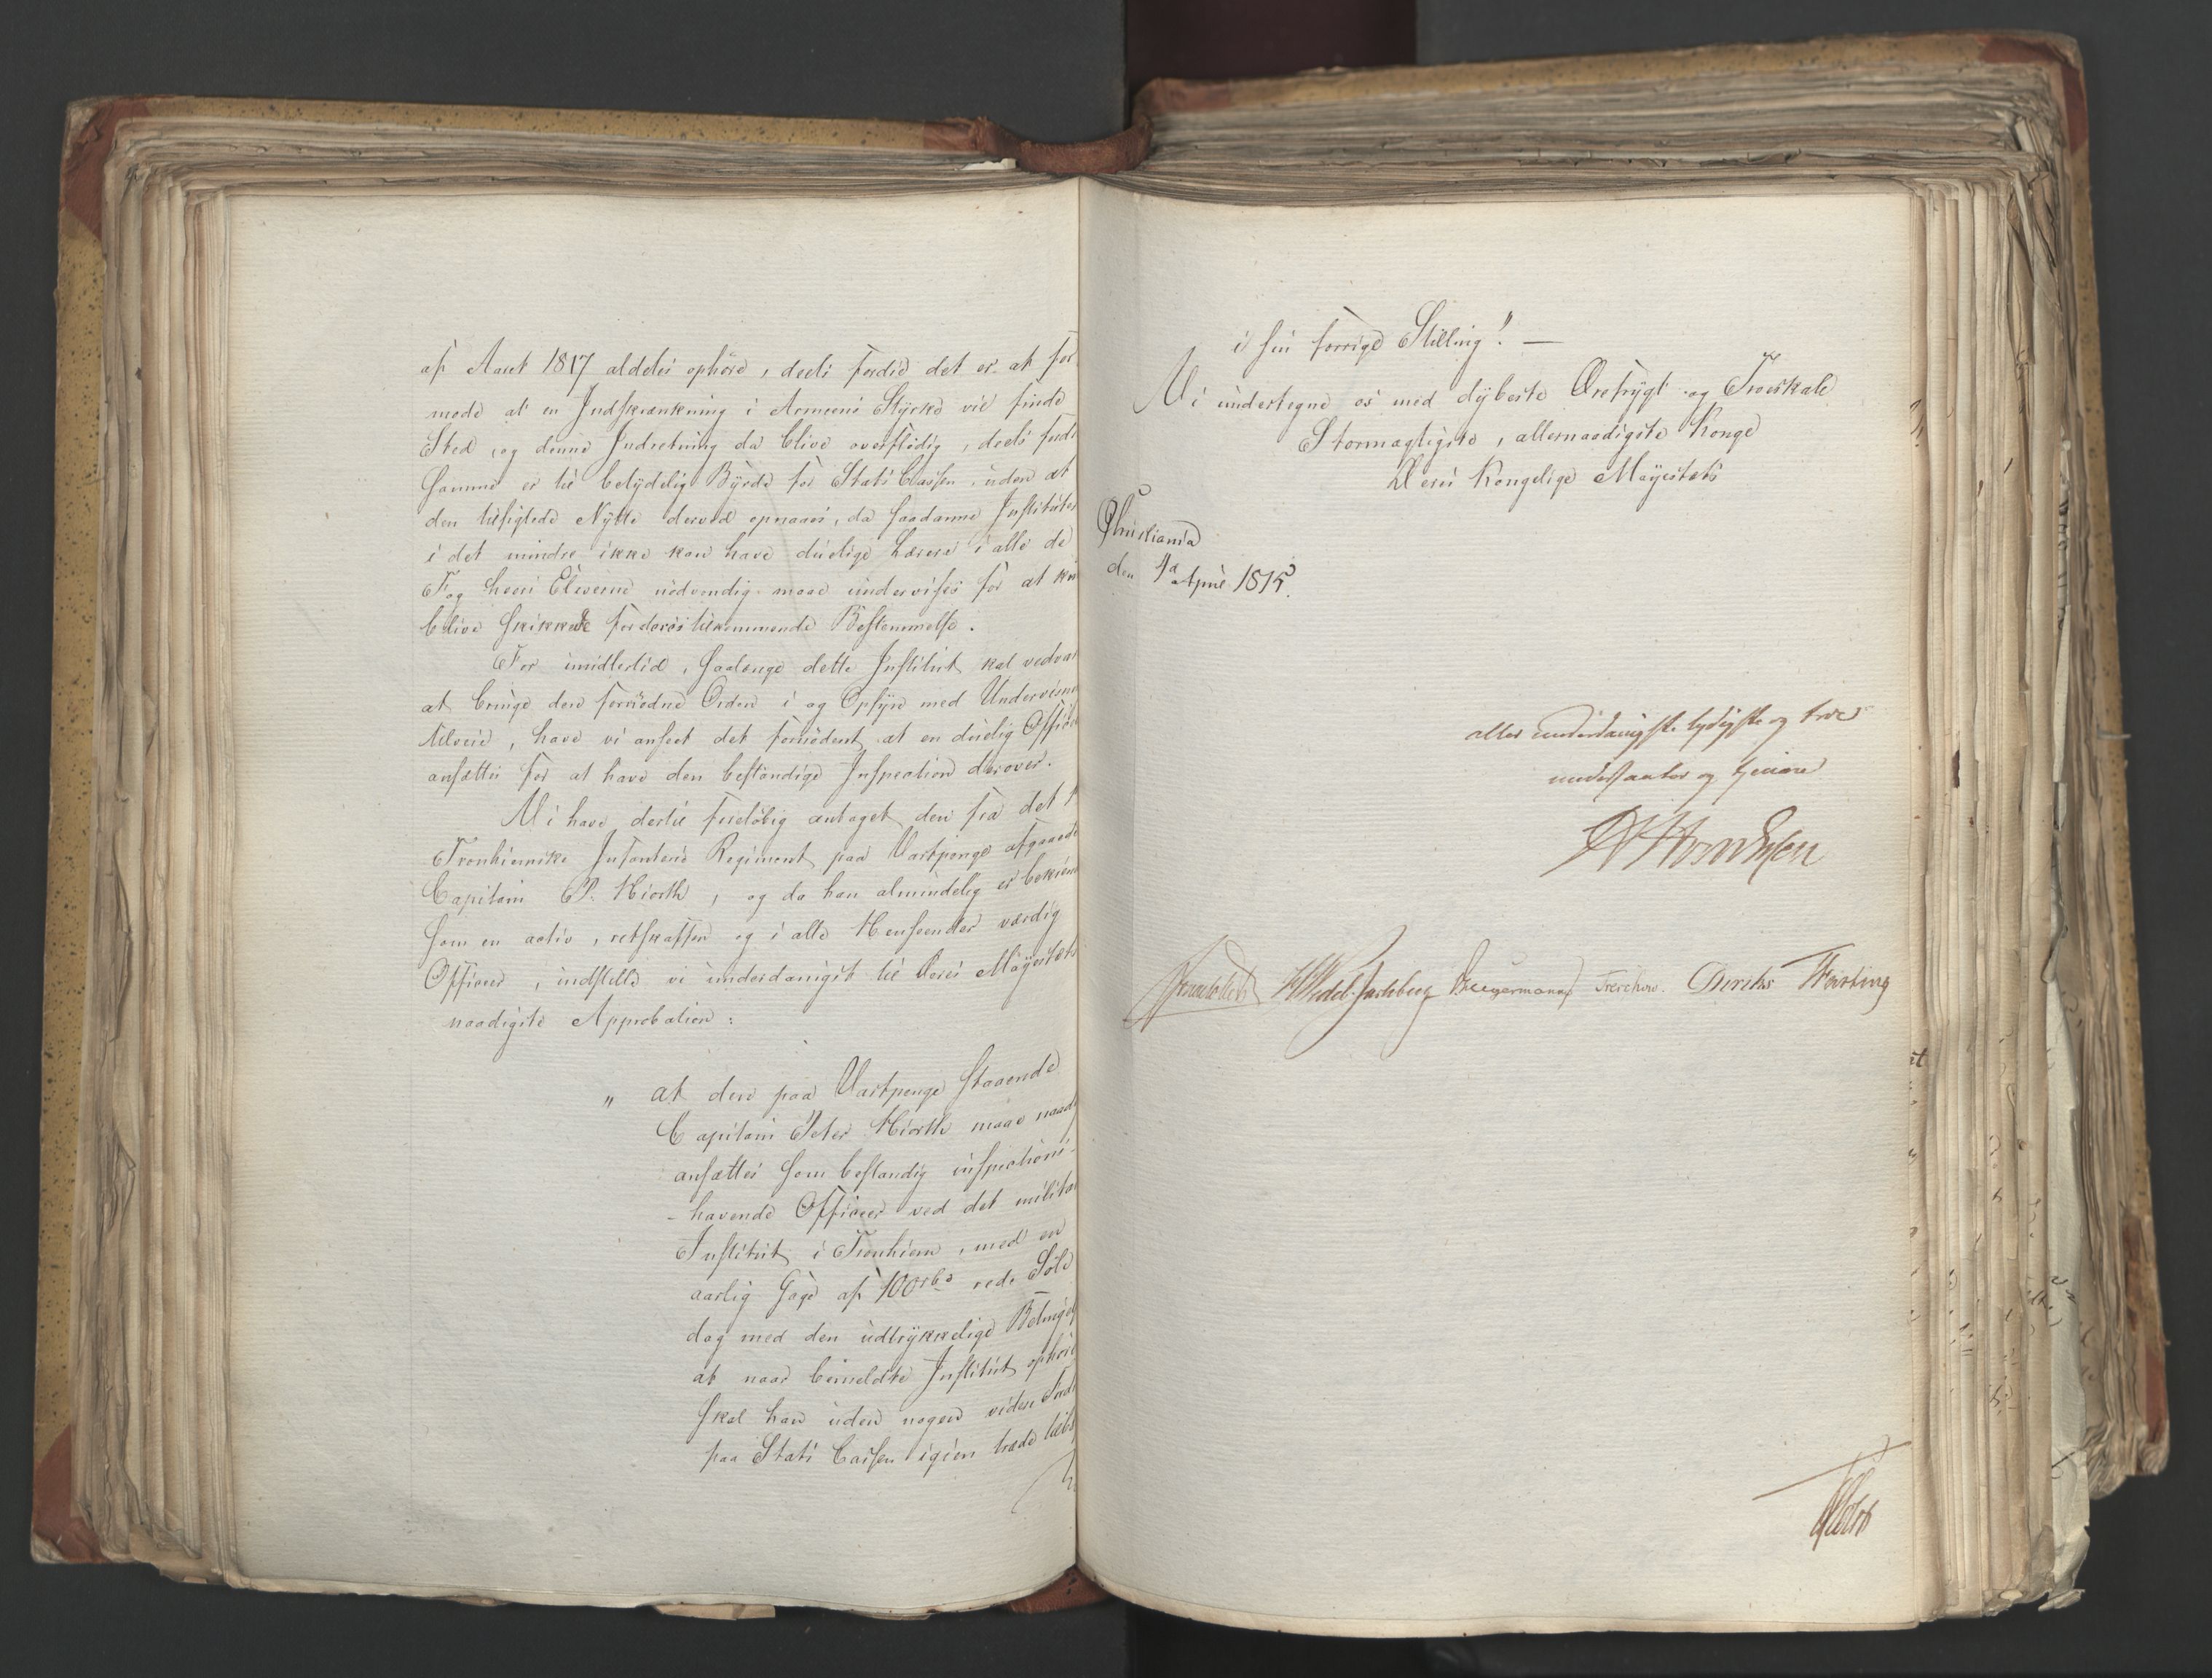 af Aaret 1817 aldeles ophøre, deels fordie det er at for
mode at en Indskrænkning i Armeens Styrke vil finde
Sted, og denne Indretning da blive overflødig, deels fordi
samme er til betydelig Byrde for Stats Cassen, uden at
den tilsigtede Nytte derved opnaaes, da saadanne Institúter
i det mindre ikke kan have duelige Lærere i alle de
Fag hvori Eleverne nödvendig maae undervises for at kun
blive skikkede for deres tilkommende Bestemmelse.
For imidlertid, saalænge dette Institut skal vedvar
at bringe den fornødne Orden i og Opsyn med Undervisn
tilveie, have vi anseet det fornödent at en duelig Officer
ansættes for at have den bestandige Inspection derover.
Vi have dertil foreløbig antaget den fra det
Tronhiemske Infanterie Regiment paa Vartpenge afgaaede
Capitain P. Hiorth, og da han almindelig er bekient
som en activ, retskaffen og i alle Henseender værdig
Officeer, indstille vi underdanigst til Deres Majestæts
naadigste Approbation:
" at den paa Vartpenge staaende
Capitain Peter Hiorth maae naad
ansættes som bestandig inspections-
-havende Officeer ved det militai
Institut i Tronhiem, med en
aarlig Gage af 100 rbd rede Sölv
dog med den udtrykkelige Betingels
at naar bemeldte Institut ophöre
skal han uden nogen videre
paa Stats Cassen igien træde tilb
i sin forrige Stilling!" —
Vi undertegne os med dybeste Ærefrygt og Troeskab
Stormægtigste, allernaadigste Konge
Deres Kongelige Mayestæts
Christiania
den 4de April 1815.
aller underdanigste lydigste og troe
undersaatter og tjenere
H Wedel-Jarlsberg Treschow. Diriks Fasting